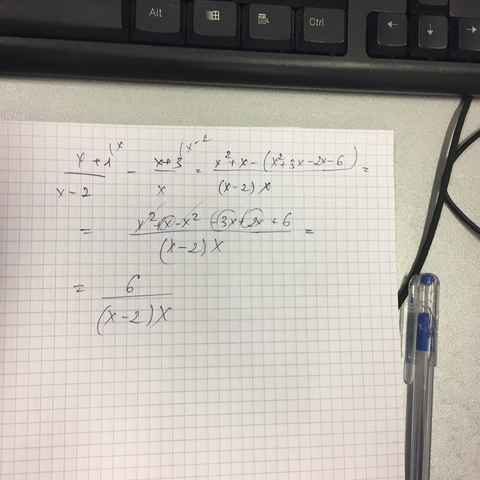 Alt
Ctrl
← ↓ →
(x+1)/(x-2) - (x+3)/x = (x²+x-(x²+3x-2x-6))/((x-2)x) =
x x-2
= (x²+x-x²-3x+2x+6)/((x-2)x) =
= 6/((x-2)x)